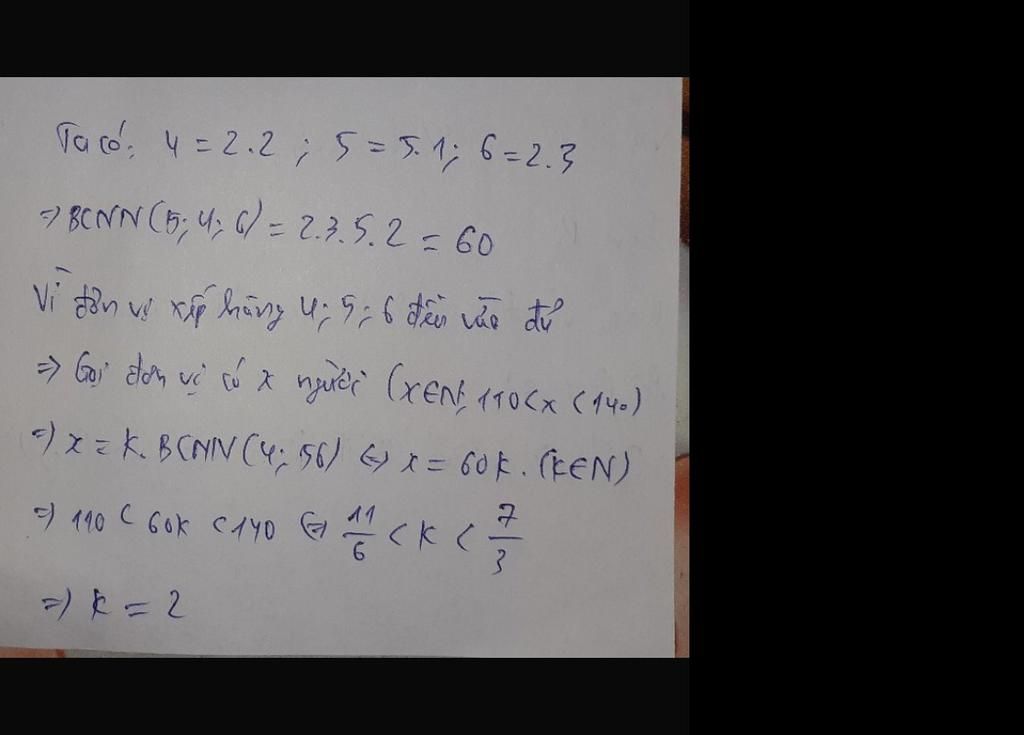 Ta có: 4 = 2.2 ; 5 = 5.1; 6 = 2.3
=> BCNN(5; 4; 6) = 2.3.5.2 = 60
Vì đơn vị xếp hàng 4; 5; 6 đều vừa đủ
=> Gọi đơn vị có x người (x∈N; 110<x<140)
=> x = k. BCNN(4; 56) <=> x = 60k. (k∈N)
=> 110 < 60k < 140 <=> 11/6 < k < 7/3
=> k = 2